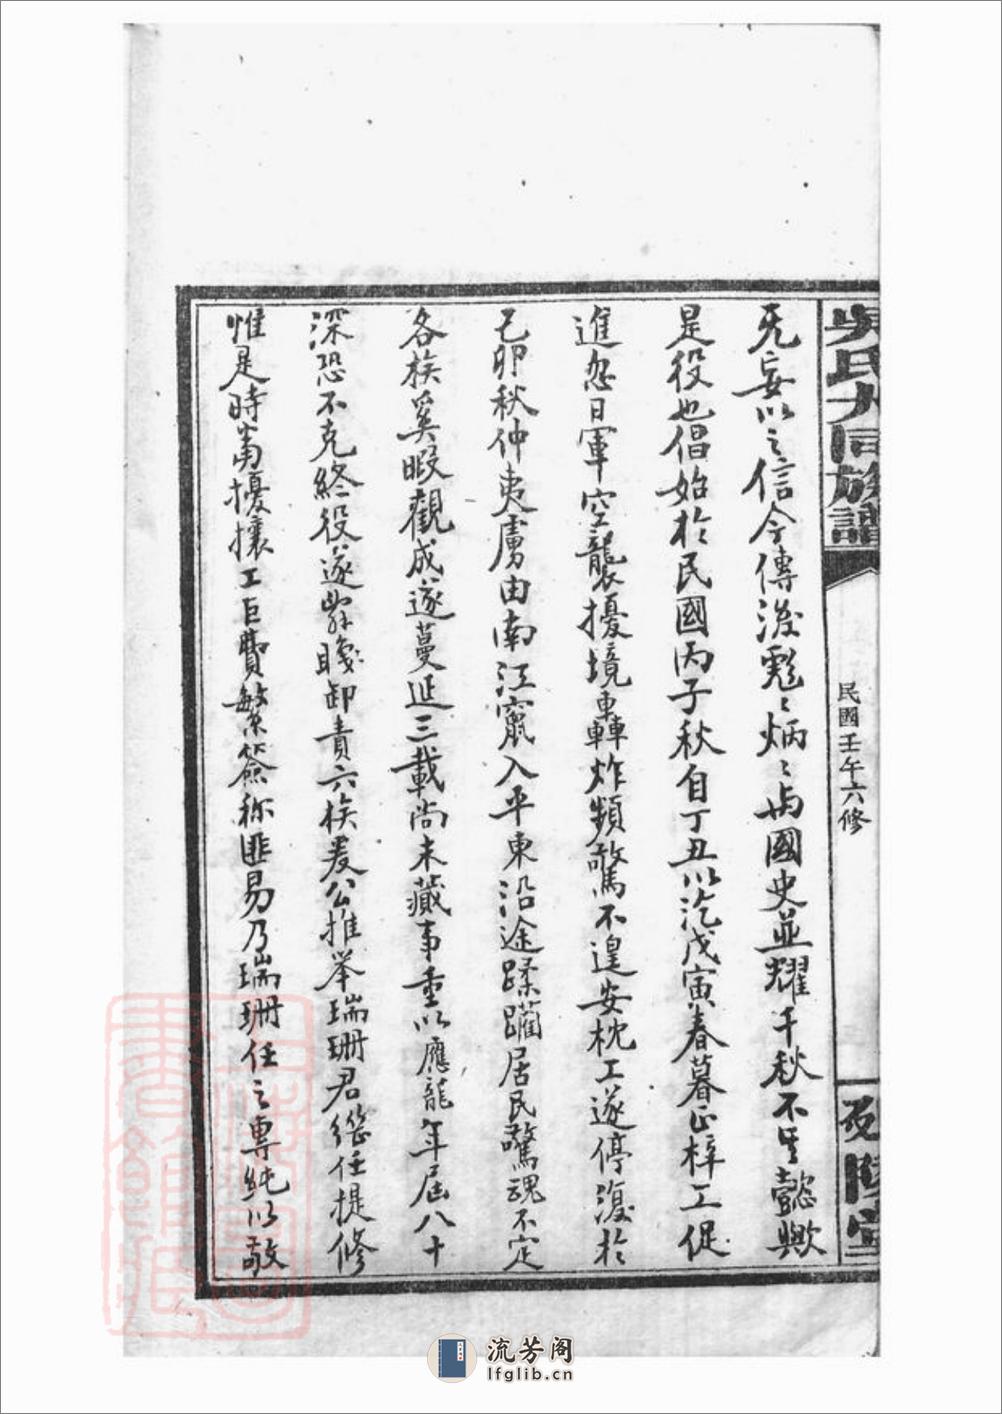 吳氏大同族譜
民國壬午六修
延陵堂
无妄以之信今傳後彪〻炳〻与國史並耀千秋不其懿歟
是役也倡始於民國丙子秋自丁丑以汔戊寅春暮正梓工促
進忽日軍空襲擾境轟炸頻驚不遑安枕工遂停復於
己卯秋仲夷虜由南江竄入平東沿途蹂躪居民驚魂不定
各族奚暇觀成遂蔓延三載尚未蕆事重以應龍年屆八十
深恐不克終役遂辭職卸責六族爰公推举瑞珊君繼任提修
惟是時當擾攘工巨費繁簽称匪易乃瑞珊任之專純以敬
流芳阁
lfglib.cn